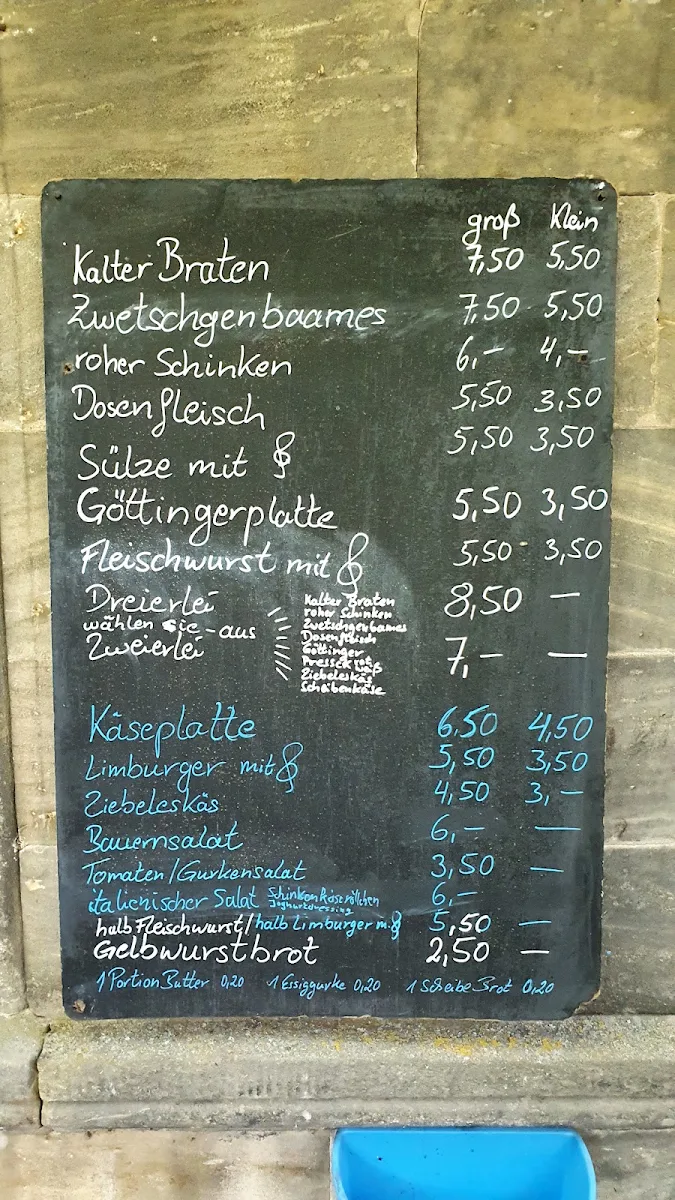 groß Klein
Kalter Braten 7,50 5,50
Zwetschgenbaames 7,50 5,50
roher Schinken 6,— 4,—
Dosenfleisch 5,50 3,50
Sülze mit 5,50 3,50
Göttingerplatte 5,50 3,50
Fleischwurst mit 5,50 3,50
Dreierlei 8,50 —
wählen sie - aus
Zweierlei 7,— —
Kalter Braten
roher Schinken
Zwetschgenbaames
Dosenfleisch
Göttinger
Pressack rot weiß
Ziebeleskäs
Scheibenkäse
Käseplatte 6,50 4,50
Limburger mit 5,50 3,50
Ziebeleskäs 4,50 3,—
Bauernsalat 6,— —
Tomaten/Gurkensalat 3,50 —
italienischer Salat Schinken Käseröllchen 6,—
Joghurtdressing
halb Fleischwurst/halb Limburger m. 5,50 —
Gelbwurstbrot 2,50 —
1 Portion Butter 0,20 1 Essiggurke 0,20 1 Scheibe Brot 0,20